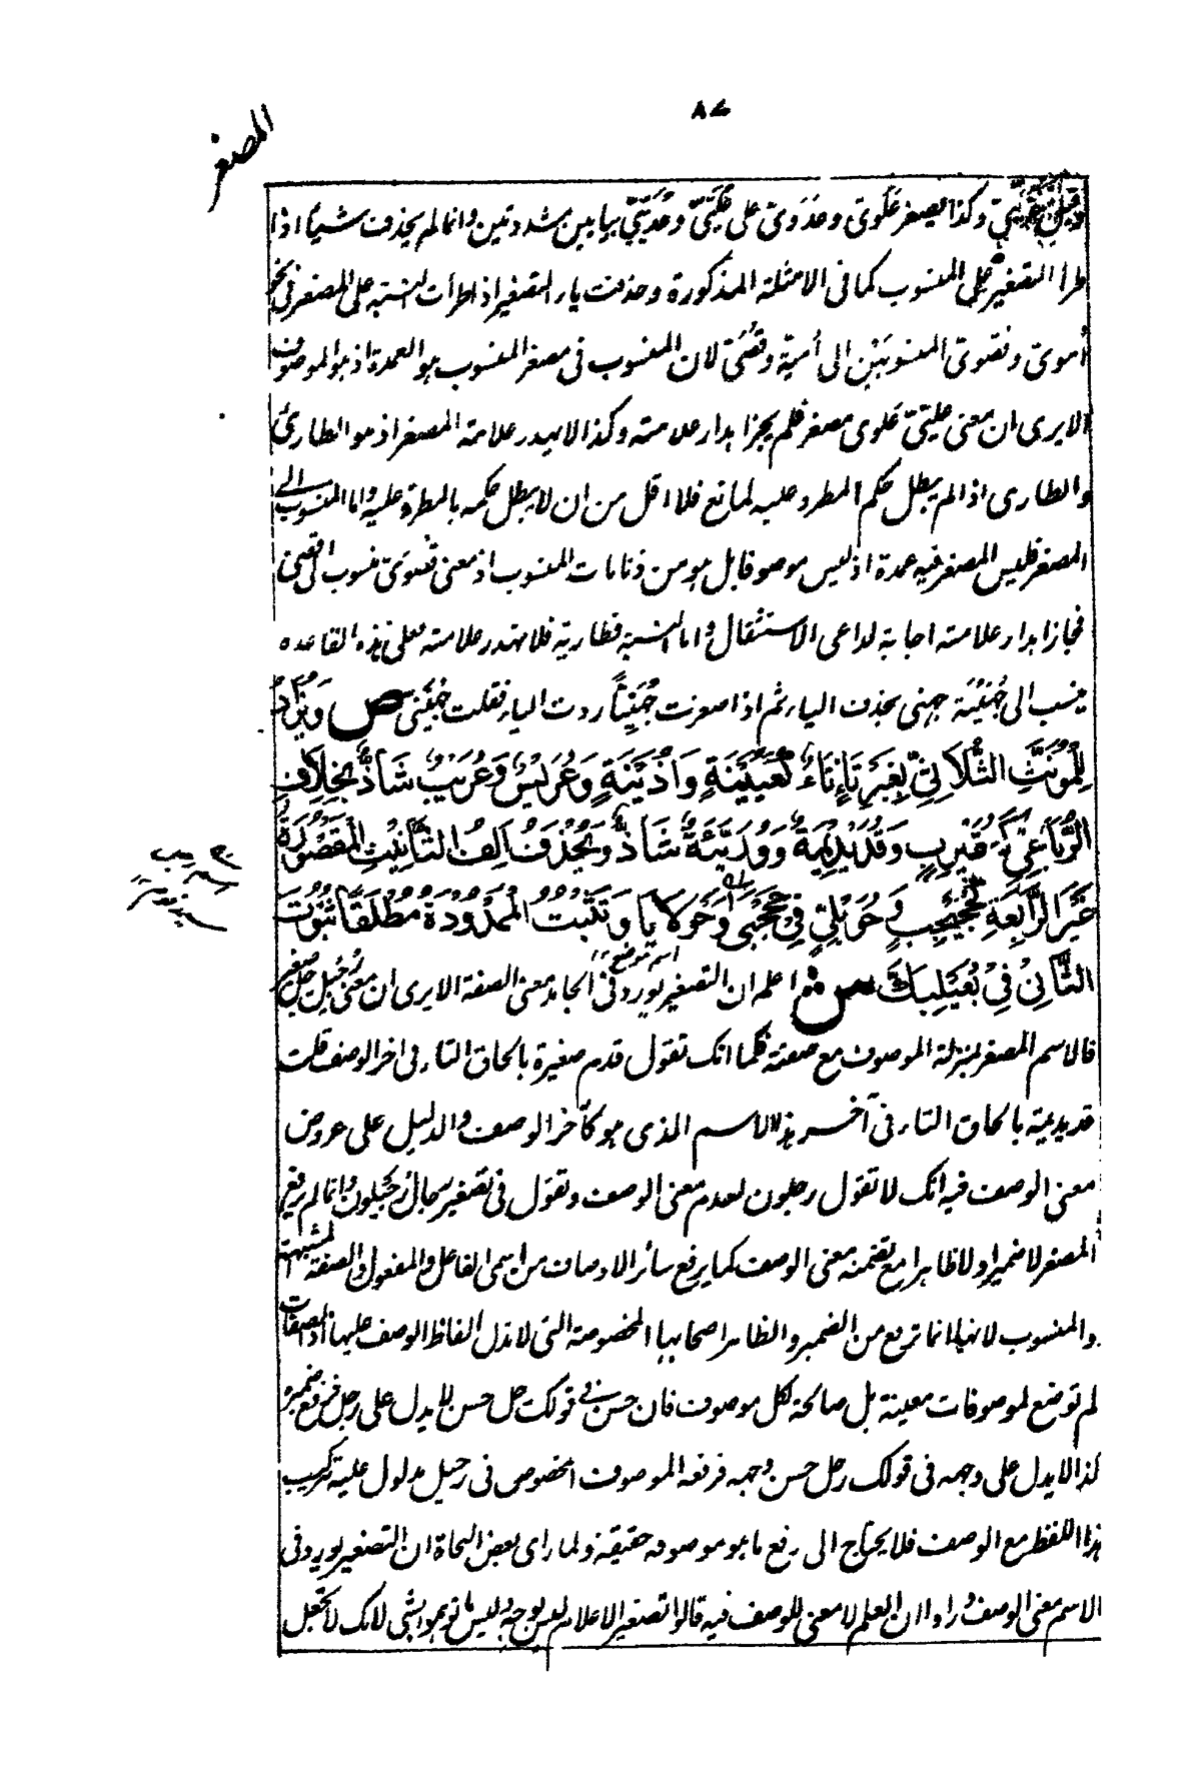 ٨٧
المصغر
وقبل عربيّ وكذا يصغر عَلَوىّ وعَدَوىّ على عُلَيِّيّ وعُدَيِّيّ بيايين مشددتين وانما لم يحذف شيئا اذا
طرأ التصغير على المنسوب كما فى الامثلة المذكورة وحذفت ياء التصغير اذا طرأت النسبة على المصغر فى نحو
اُموىّ وقصوىّ المنسوبَيْن الى أميّة وقُصَىّ لان المنسوب فى مصغر المنسوب هو العمدة اذ هو الموصوف
الا يرى ان معنى عليّيّ علوى مصغر فلم يجز اهدار علامته وكذا لا يهدر علامة المصغر اذ هو الطارئ
والطارى اذا لم يبطل حكم المطرو عليه لمانع فلا اقل من ان لا يبطل حكمه بالمطرو عليه واما المنسوب الى
المصغر فليس المصغر فيه عمدة اذ ليس موصوفا بل هو من ذنابات المنسوب اذ معنى قُصَوىّ منسوب الى قصىّ
فجاز اهدار علامته اجابة لداعى الاستثقال واما النسبة فطارية فلا تهدر علامته فعلى هذه القاعده
ينسب الى جُهَيْنَة جهنى بحذف الياء ثم اذا صغرت جُهَنِيّاً ردت الياء فقلت جُهَيْنىّ ص وَيُزَادُ
لِلْمُؤَنَّثِ الثُّلَاثِيِّ بِغَيْرِ تَاءٍ تَاءٌ كَعُيَيْنَةٍ وَاُذَيْنَةٍ وَعُرَيْسٌ وَعُرَيْبٌ شَاذٌّ بِخِلَافِ
الرُّبَاعِيِّ كَعُقَيْرِبٍ وَقُدَيْدِيْمَةٌ وَوُرَيِّئَةٌ شَاذٌّ وَيُحْذَفُ اَلِفُ التَّأْنِيْثِ الْمَقْصُوْرَةُ
غَيْرَ الرَّابِعَةِ كَحُجَيْجِبٍ وَحُوَيْلِيٍّ فِيْ جَحْجَبٰى وَحَوْلَايَا وَتَثْبُتُ الْمَمْدُوْدَةُ مُطْلَقًا ثُبُوْتَ
اسم موضع
الثَّانِيْ فِيْ بُعَيْلِبَكَّ ش اعلم ان التصغير يورد فى الجامد معنى الصفة الا يرى ان معنى رُجَيْل رجل صغير
فالاسم المصغر بمنزلة الموصوف مع صفته فكما انك تقول قدم صغيرة بالحاق التاء فى اخر الوصف قلت
قديديمة بالحاق التاء فى آخر هذا الاسم الذى هو كآخر الوصف والدليل على عروض
معنى الوصف فيه انك لا تقول رجلون لعدم معنى الوصف وتقول فى تصغير رجال رُجَيْلون وانما لم يرفع
المصغر لا ضميرا ولا ظاهرا مع تضمنه معنى الوصف كما يرفع سائر الاوصاف من اسمى الفاعل والمفعول والصفة المشبهة
والمنسوب لانها انما ترفع من الضمير والظاهر اصحابها المخصوصة التى لا تدل الفاظ الوصف عليها اذ الصفات
لم توضع لموصوفات معينة بل صالحة لكل موصوف فان حسن فى قولك رجل حسن لا يدل على رجل فرفع ضميره
كذا لا يدل على وجهه فى قولك رجل حسن وجهه فرفعه الموصوف المخصوص فى رجيل مدلول عليه بتركيب
هذا اللفظ مع الوصف فلا يحتاج الى رفع ما هو موصوفه حقيقة ولما راى بعض النحاة ان التصغير يورد فى
الاسم معنى الوصف وراوا ان العلم لا معنى للوصف فيه قالوا تصغير الاعلام ليس بوجه وليس ما توهموا بشئ لانك لا تجعل